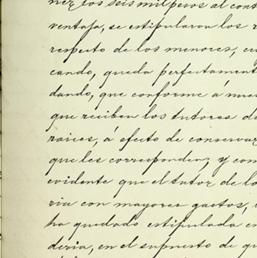 nez los seis mil pesos al cont
ventaja, se estipularon los r
respecto de los menores, cu
cando, queda perfectament
dando, que conforme a nues
que reciben los tutores de
raices, á efecto de conservar
que les corresponden, y com
evidente que el tutor de lo
ria con mayores gastos, i
ha quedado estipulada en
deria, en el supuesto de qu